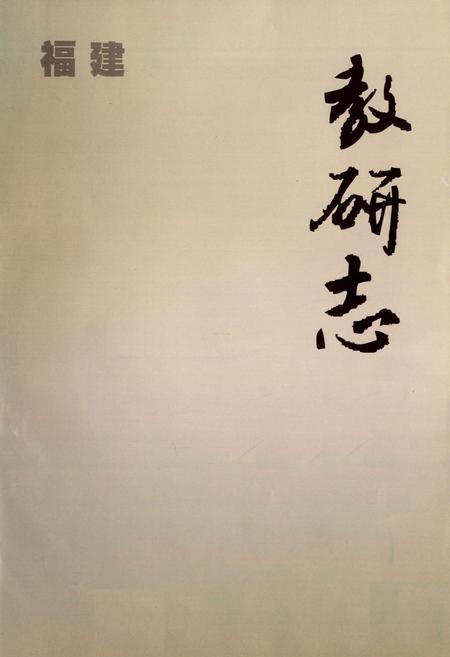 福建
教研志